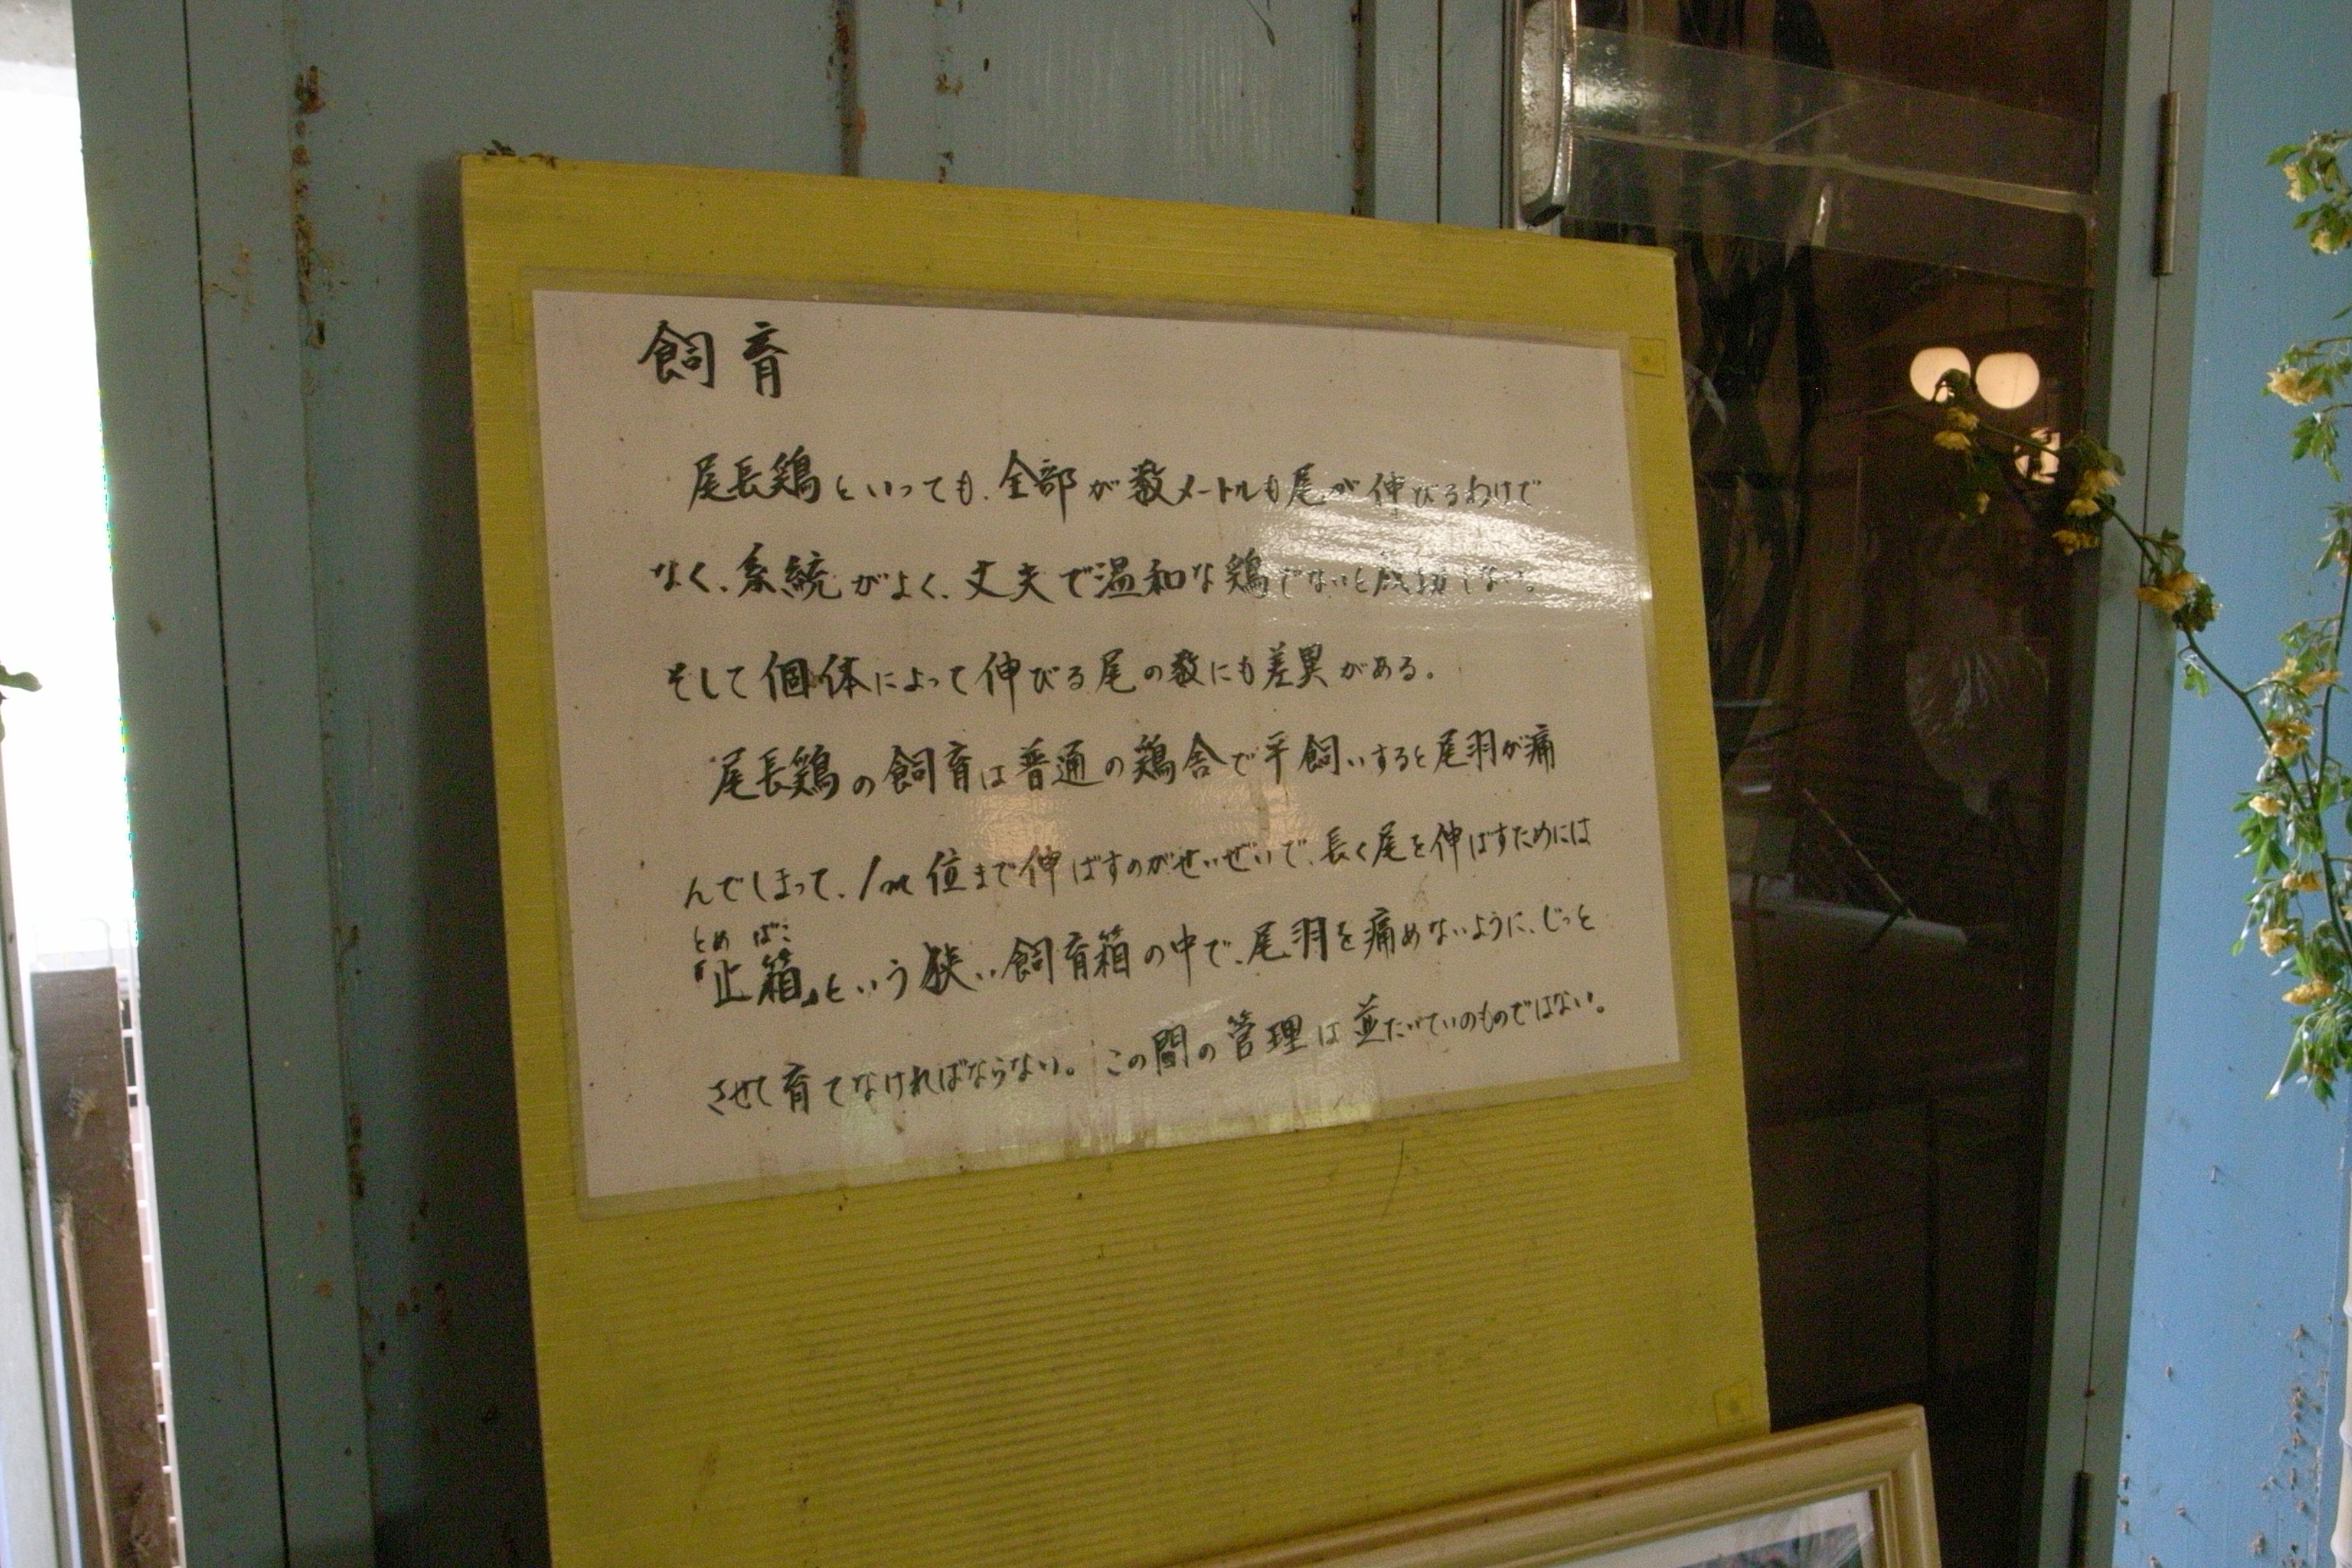 飼育
尾長鶏といっても、全部が数メートルも尾が伸びるわけで
なく、系統がよく、丈夫で温和な鶏でないと成功しない。
そして個体によって伸びる尾の数にも差異がある。
尾長鶏の飼育は普通の鶏舎で平飼いすると尾羽が痛
んでしまって、1m位まで伸ばすのがせいぜいで、長く尾を伸ばすためには
とめ ばこ
「止箱」という狭い飼育箱の中で、尾羽を痛めないように、じっと
させて育てなければならない。この間の管理は並たいていのものではない。